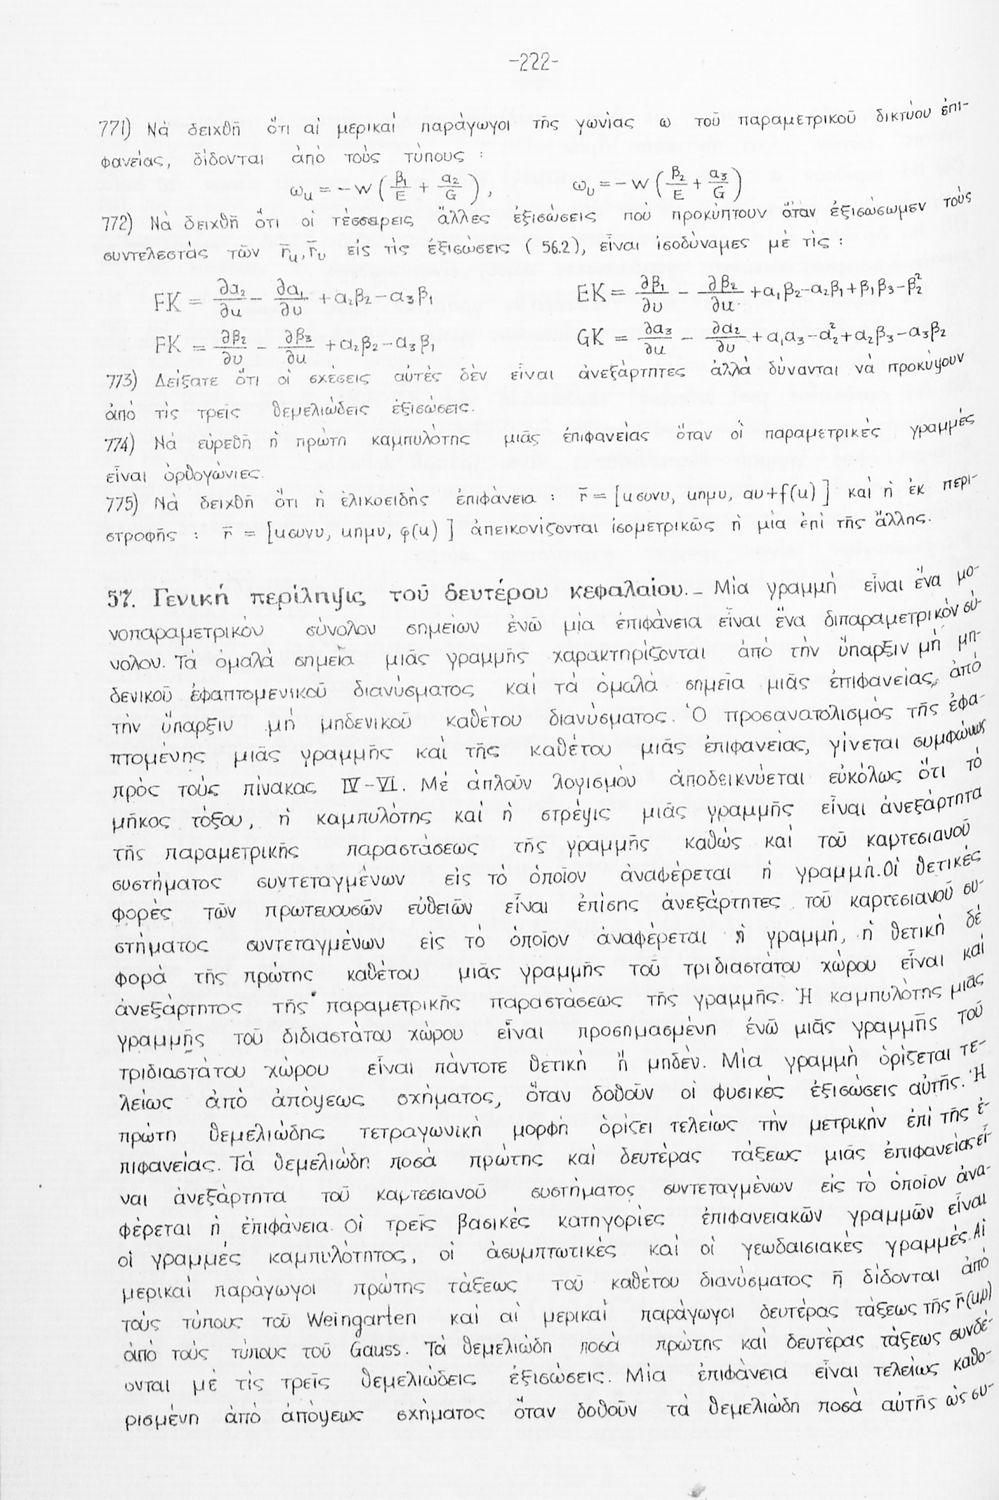 -222-
771) Νὰ δειχθῆ ὅτι αἱ μερικαὶ παράγωγοι τῆς γωνίας ω τοῦ παραμετρικοῦ δικτύου ἐπι-
φανείας, δίδονται ἀπὸ τοὺς τύπους :
ω_u = -W (β₁/E + α₂/G), ω_υ = -W (β₂/E + α₃/G)
772) Νὰ δειχθῆ ὅτι οἱ τέσσερεις ἄλλες ἐξισώσεις ποὺ προκύπτουν ὅταν ἐξισώσωμεν τοὺς
συντελεστὰς τῶν r̄_u, r̄_υ εἰς τὶς ἐξισώσεις (56.2), εἶναι ἰσοδύναμες μὲ τὶς :
FK = ∂α₂/∂u - ∂α₁/∂υ + α₂β₂ - α₃β₁ EK = ∂β₁/∂υ - ∂β₂/∂u + α₁β₂ - α₂β₁ + β₁β₃ - β₂²
FK = ∂β₂/∂υ - ∂β₃/∂u + α₂β₂ - α₃β₁ GK = ∂α₃/∂u - ∂α₂/∂υ + α₁α₃ - α₂² + α₂β₃ - α₃β₂
773) Δείξατε ὅτι οἱ σχέσεις αὐτὲς δὲν εἶναι ἀνεξάρτητες ἀλλὰ δύνανται νὰ προκύψουν
ἀπὸ τὶς τρεῖς θεμελιώδεις ἐξισώσεις.
774) Νὰ εὑρεθῆ ἡ πρώτη καμπυλότης μιᾶς ἐπιφανείας ὅταν οἱ παραμετρικὲς γραμμὲς
εἶναι ὀρθογώνιες.
775) Νὰ δειχθῆ ὅτι ἡ ἑλικοειδὴς ἐπιφάνεια : r̄ = [uσυνυ, uημυ, αυ+f(u)] καὶ ἡ ἐκ περι-
στροφῆς : r̄ = [uσυνυ, uημυ, φ(u)] ἀπεικονίζονται ἰσομετρικῶς ἡ μία ἐπὶ τῆς ἄλλης.
57. Γενικὴ περίληψις τοῦ δευτέρου κεφαλαίου._ Μία γραμμὴ εἶναι ἕνα μο-
νοπαραμετρικὸν σύνολον σημείων ἐνῶ μία ἐπιφάνεια εἶναι ἕνα διπαραμετρικὸν σύ-
νολον. Τὰ ὁμαλὰ σημεῖα μιᾶς γραμμῆς χαρακτηρίζονται ἀπὸ τὴν ὕπαρξιν μὴ μη-
δενικοῦ ἐφαπτομενικοῦ διανύσματος καὶ τὰ ὁμαλὰ σημεῖα μιᾶς ἐπιφανείας, ἀπὸ
τὴν ὕπαρξιν μὴ μηδενικοῦ καθέτου διανύσματος. Ὁ προσανατολισμὸς τῆς ἐφα-
πτομένης μιᾶς γραμμῆς καὶ τῆς καθέτου μιᾶς ἐπιφανείας, γίνεται συμφώνως
πρὸς τοὺς πίνακας IV-VI. Μὲ ἁπλοῦν λογισμὸν ἀποδεικνύεται εὐκόλως ὅτι τὸ
μῆκος τόξου, ἡ καμπυλότης καὶ ἡ στρέψις μιᾶς γραμμῆς εἶναι ἀνεξάρτητα
τῆς παραμετρικῆς παραστάσεως τῆς γραμμῆς καθὼς καὶ τοῦ καρτεσιανοῦ
συστήματος συντεταγμένων εἰς τὸ ὁποῖον ἀναφέρεται ἡ γραμμή. Οἱ θετικὲς
φορὲς τῶν πρωτευουσῶν εὐθειῶν εἶναι ἐπίσης ἀνεξάρτητες τοῦ καρτεσιανοῦ συ-
στήματος συντεταγμένων εἰς τὸ ὁποῖον ἀναφέρεται ἡ γραμμή, ἡ θετικὴ δὲ
φορὰ τῆς πρώτης καθέτου μιᾶς γραμμῆς τοῦ τριδιαστάτου χώρου εἶναι καὶ
ἀνεξάρτητος τῆς παραμετρικῆς παραστάσεως τῆς γραμμῆς. Ἡ καμπυλότης μιᾶς
γραμμῆς τοῦ διδιαστάτου χώρου εἶναι προσημασμένη ἐνῶ μιᾶς γραμμῆς τοῦ
τριδιαστάτου χώρου εἶναι πάντοτε θετικὴ ἢ μηδέν. Μία γραμμὴ ὁρίζεται τε-
λείως ἀπὸ ἀπόψεως σχήματος, ὅταν δοθοῦν οἱ φυσικὲς ἐξισώσεις αὐτῆς. Ἡ
πρώτη θεμελιώδης τετραγωνικὴ μορφὴ ὁρίζει τελείως τὴν μετρικὴν ἐπὶ τῆς ἐ-
πιφανείας. Τὰ θεμελιώδη ποσὰ πρώτης καὶ δευτέρας τάξεως μιᾶς ἐπιφανείας εἶ-
ναι ἀνεξάρτητα τοῦ καρτεσιανοῦ συστήματος συντεταγμένων εἰς τὸ ὁποῖον ἀνα-
φέρεται ἡ ἐπιφάνεια. Οἱ τρεῖς βασικὲς κατηγορίες ἐπιφανειακῶν γραμμῶν εἶναι
οἱ γραμμὲς καμπυλότητος, οἱ ἀσυμπτωτικὲς καὶ οἱ γεωδαισιακὲς γραμμὲς. Αἱ
μερικαὶ παράγωγοι πρώτης τάξεως τοῦ καθέτου διανύσματος n̄ δίδονται ἀπὸ
τοὺς τύπους τοῦ Weingarten καὶ αἱ μερικαὶ παράγωγοι δευτέρας τάξεως τῆς r̄(u,υ)
ἀπὸ τοὺς τύπους τοῦ Gauss. Τὰ θεμελιώδη ποσὰ πρώτης καὶ δευτέρας τάξεως συνδέ-
ονται μὲ τὶς τρεῖς θεμελιώδεις ἐξισώσεις. Μία ἐπιφάνεια εἶναι τελείως καθο-
ρισμένη ἀπὸ ἀπόψεως σχήματος ὅταν δοθοῦν τὰ θεμελιώδη ποσὰ αὐτῆς ὡς συ-